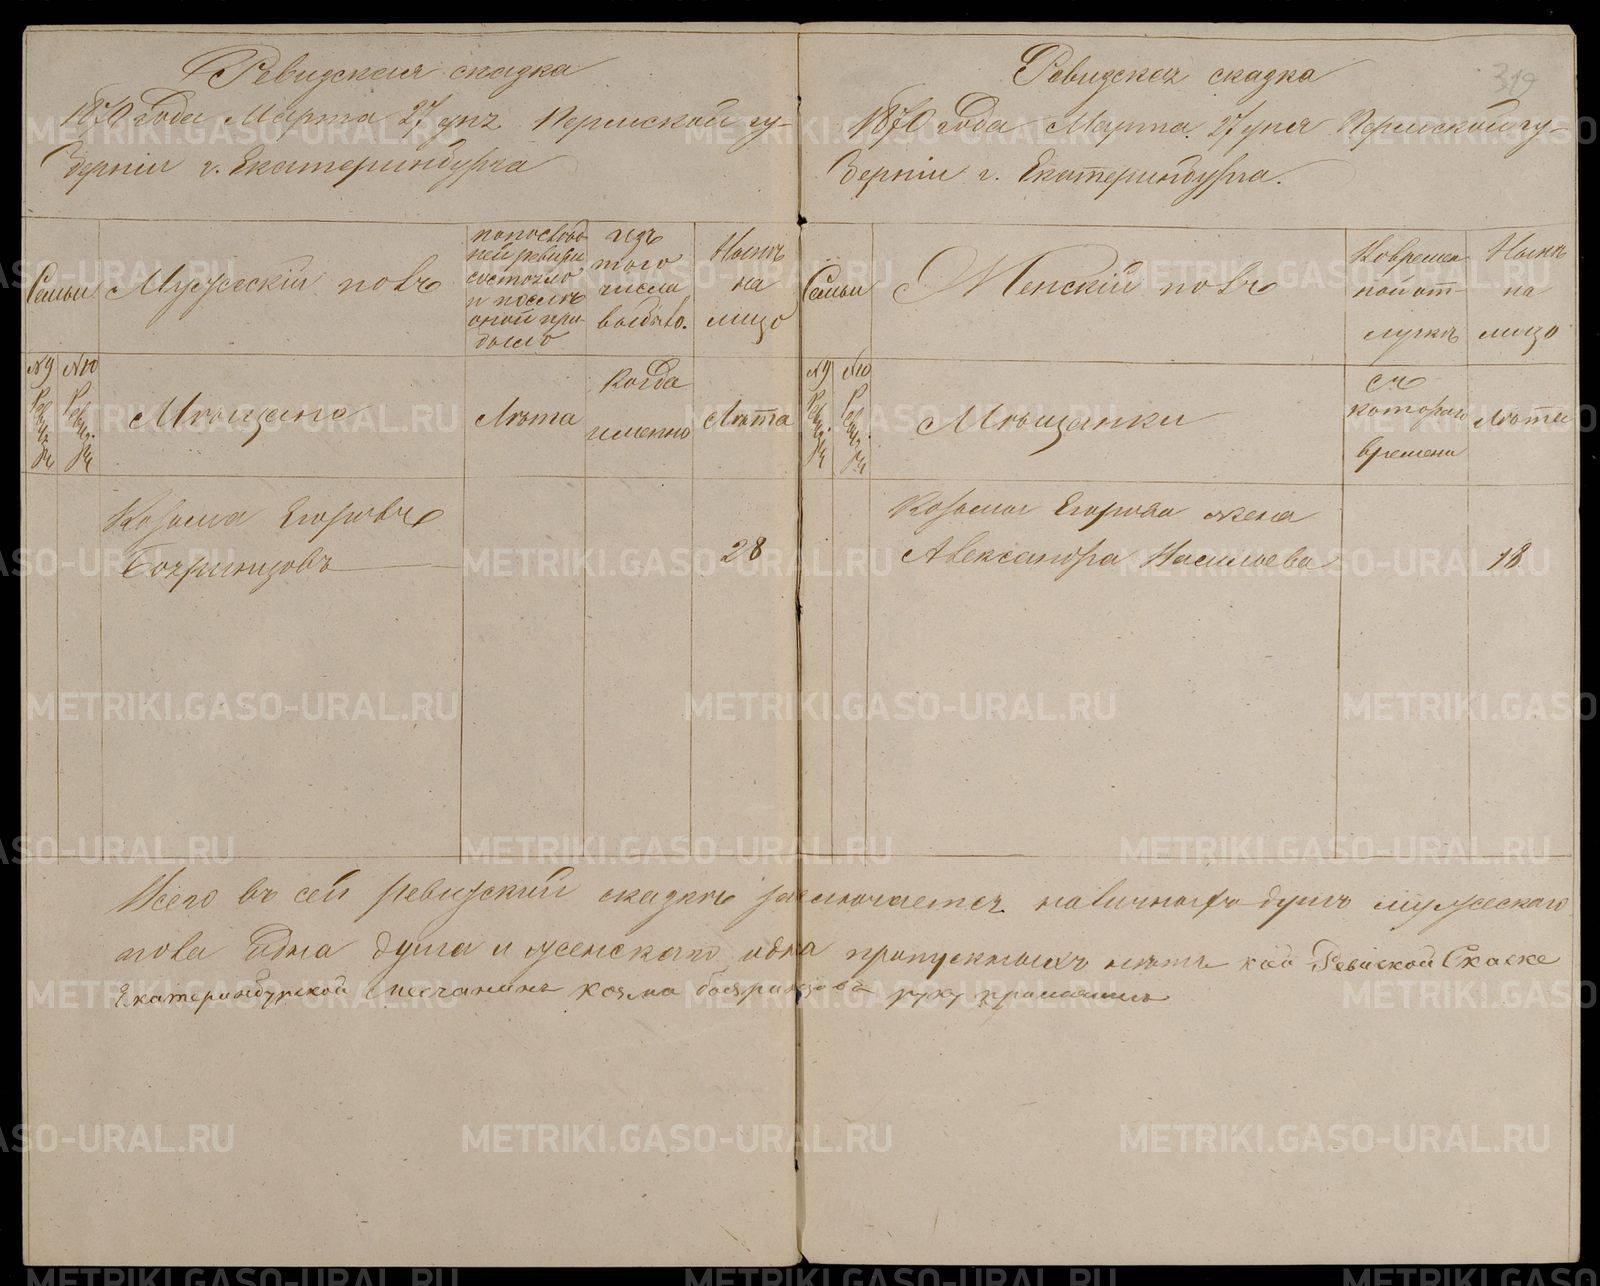 Ревизская сказка
1870 года Марта 27 дня Пермской гу-
берніи г. Екатеринбурга
Семьи
Мужескій полъ
по послѣд
ней ревизіи
состояло
и послѣ
оной при
было
изъ
того
числа
выбыло.
Нынѣ
на
лицо
№ 9 Ревиз.
№ 10 Ревиз.
Мѣщане
Лѣта
Когда
именно
Лѣта
Козьма Егоровъ
Бояринцовъ
28
Ревизская сказка
319
1870 года Марта 27 дня Пермской гу-
берніи г. Екатеринбурга.
Семьи
Женскій полъ
Во времен
ной от-
лучкѣ
Нынѣ
на
лицо
№ 9 Ревиз.
№ 10 Ревиз.
Мѣщанки
съ
котораго
времени
Лѣта
Козьмы Егорова жена
Александра Васильева
18
Всего въ сей ревизской сказкѣ заключается наличныхъ душъ мужескаго
пола одна душа и женскаго одна пропускныхъ нѣтъ к сей Ревиской Скаске
Екатеринбурской месчанинъ козма бояринцовъ руку приложилъ
METRIKI.GASO-URAL.RU